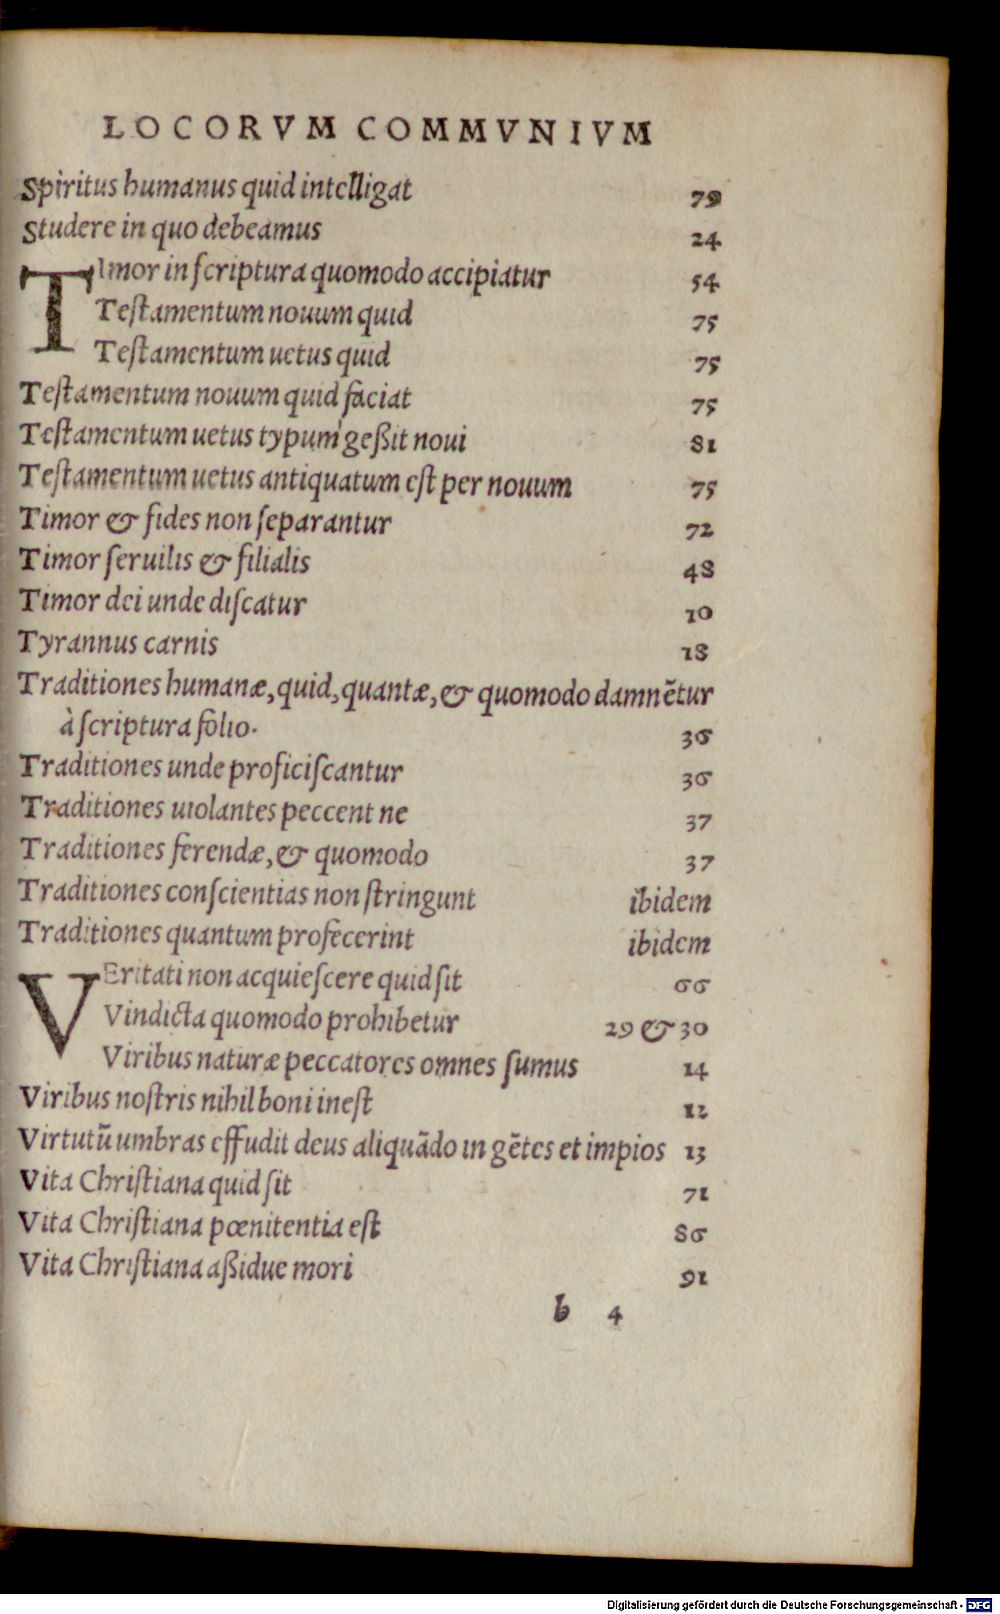 LOCORVM COMMVNIVM
Spiritus humanus quid intelligat 79
Studere in quo debeamus 24
TImor in ſcriptura quomodo accipiatur 54
Teſtamentum nouum quid 75
Teſtamentum uetus quid 75
Teſtamentum nouum quid faciat 75
Teſtamentum uetus typum geßit noui 81
Teſtamentum uetus antiquatum eſt per nouum 75
Timor & fides non ſeparantur 72
Timor ſeruilis & filialis 48
Timor dei unde diſcatur 10
Tyrannus carnis 18
Traditiones humanæ, quid, quantæ, & quomodo damnẽtur
à ſcriptura folio. 36
Traditiones unde proficiſcantur 36
Traditiones uiolantes peccent ne 37
Traditiones ferendæ, & quomodo 37
Traditiones conſcientias non ſtringunt ibidem
Traditiones quantum profecerint ibidem
VEritati non acquieſcere quid ſit 66
Vindicta quomodo prohibetur 29 & 30
Viribus naturæ peccatores omnes ſumus 14
Viribus noſtris nihil boni ineſt 12
Virtutũ umbras effudit deus aliquãdo in gẽtes et impios 13
Vita Chriſtiana quid ſit 71
Vita Chriſtiana pœnitentia eſt 86
Vita Chriſtiana aßidue mori 91
b 4
Digitalisierung gefördert durch die Deutsche Forschungsgemeinschaft - DFG